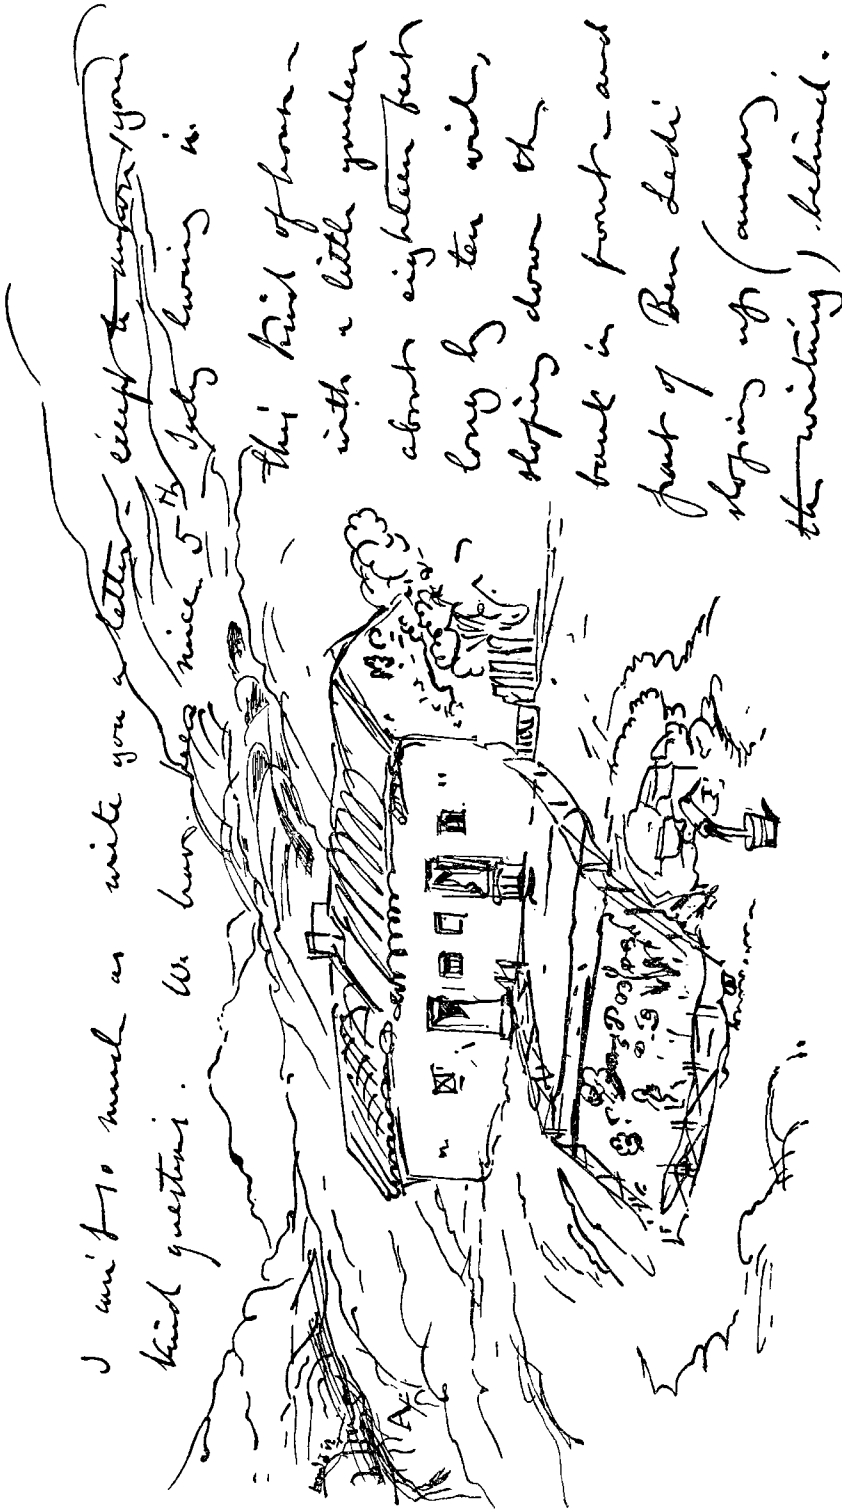 I can't so much as write you a letter – except to answer your
kind questions. We have been since 5th July living in
this kind of house –
with a little garden
about eighteen feet
long by ten wide,
sloping down the
bank in front – and
part of Ben Ledi
sloping up (among
the writing) behind.